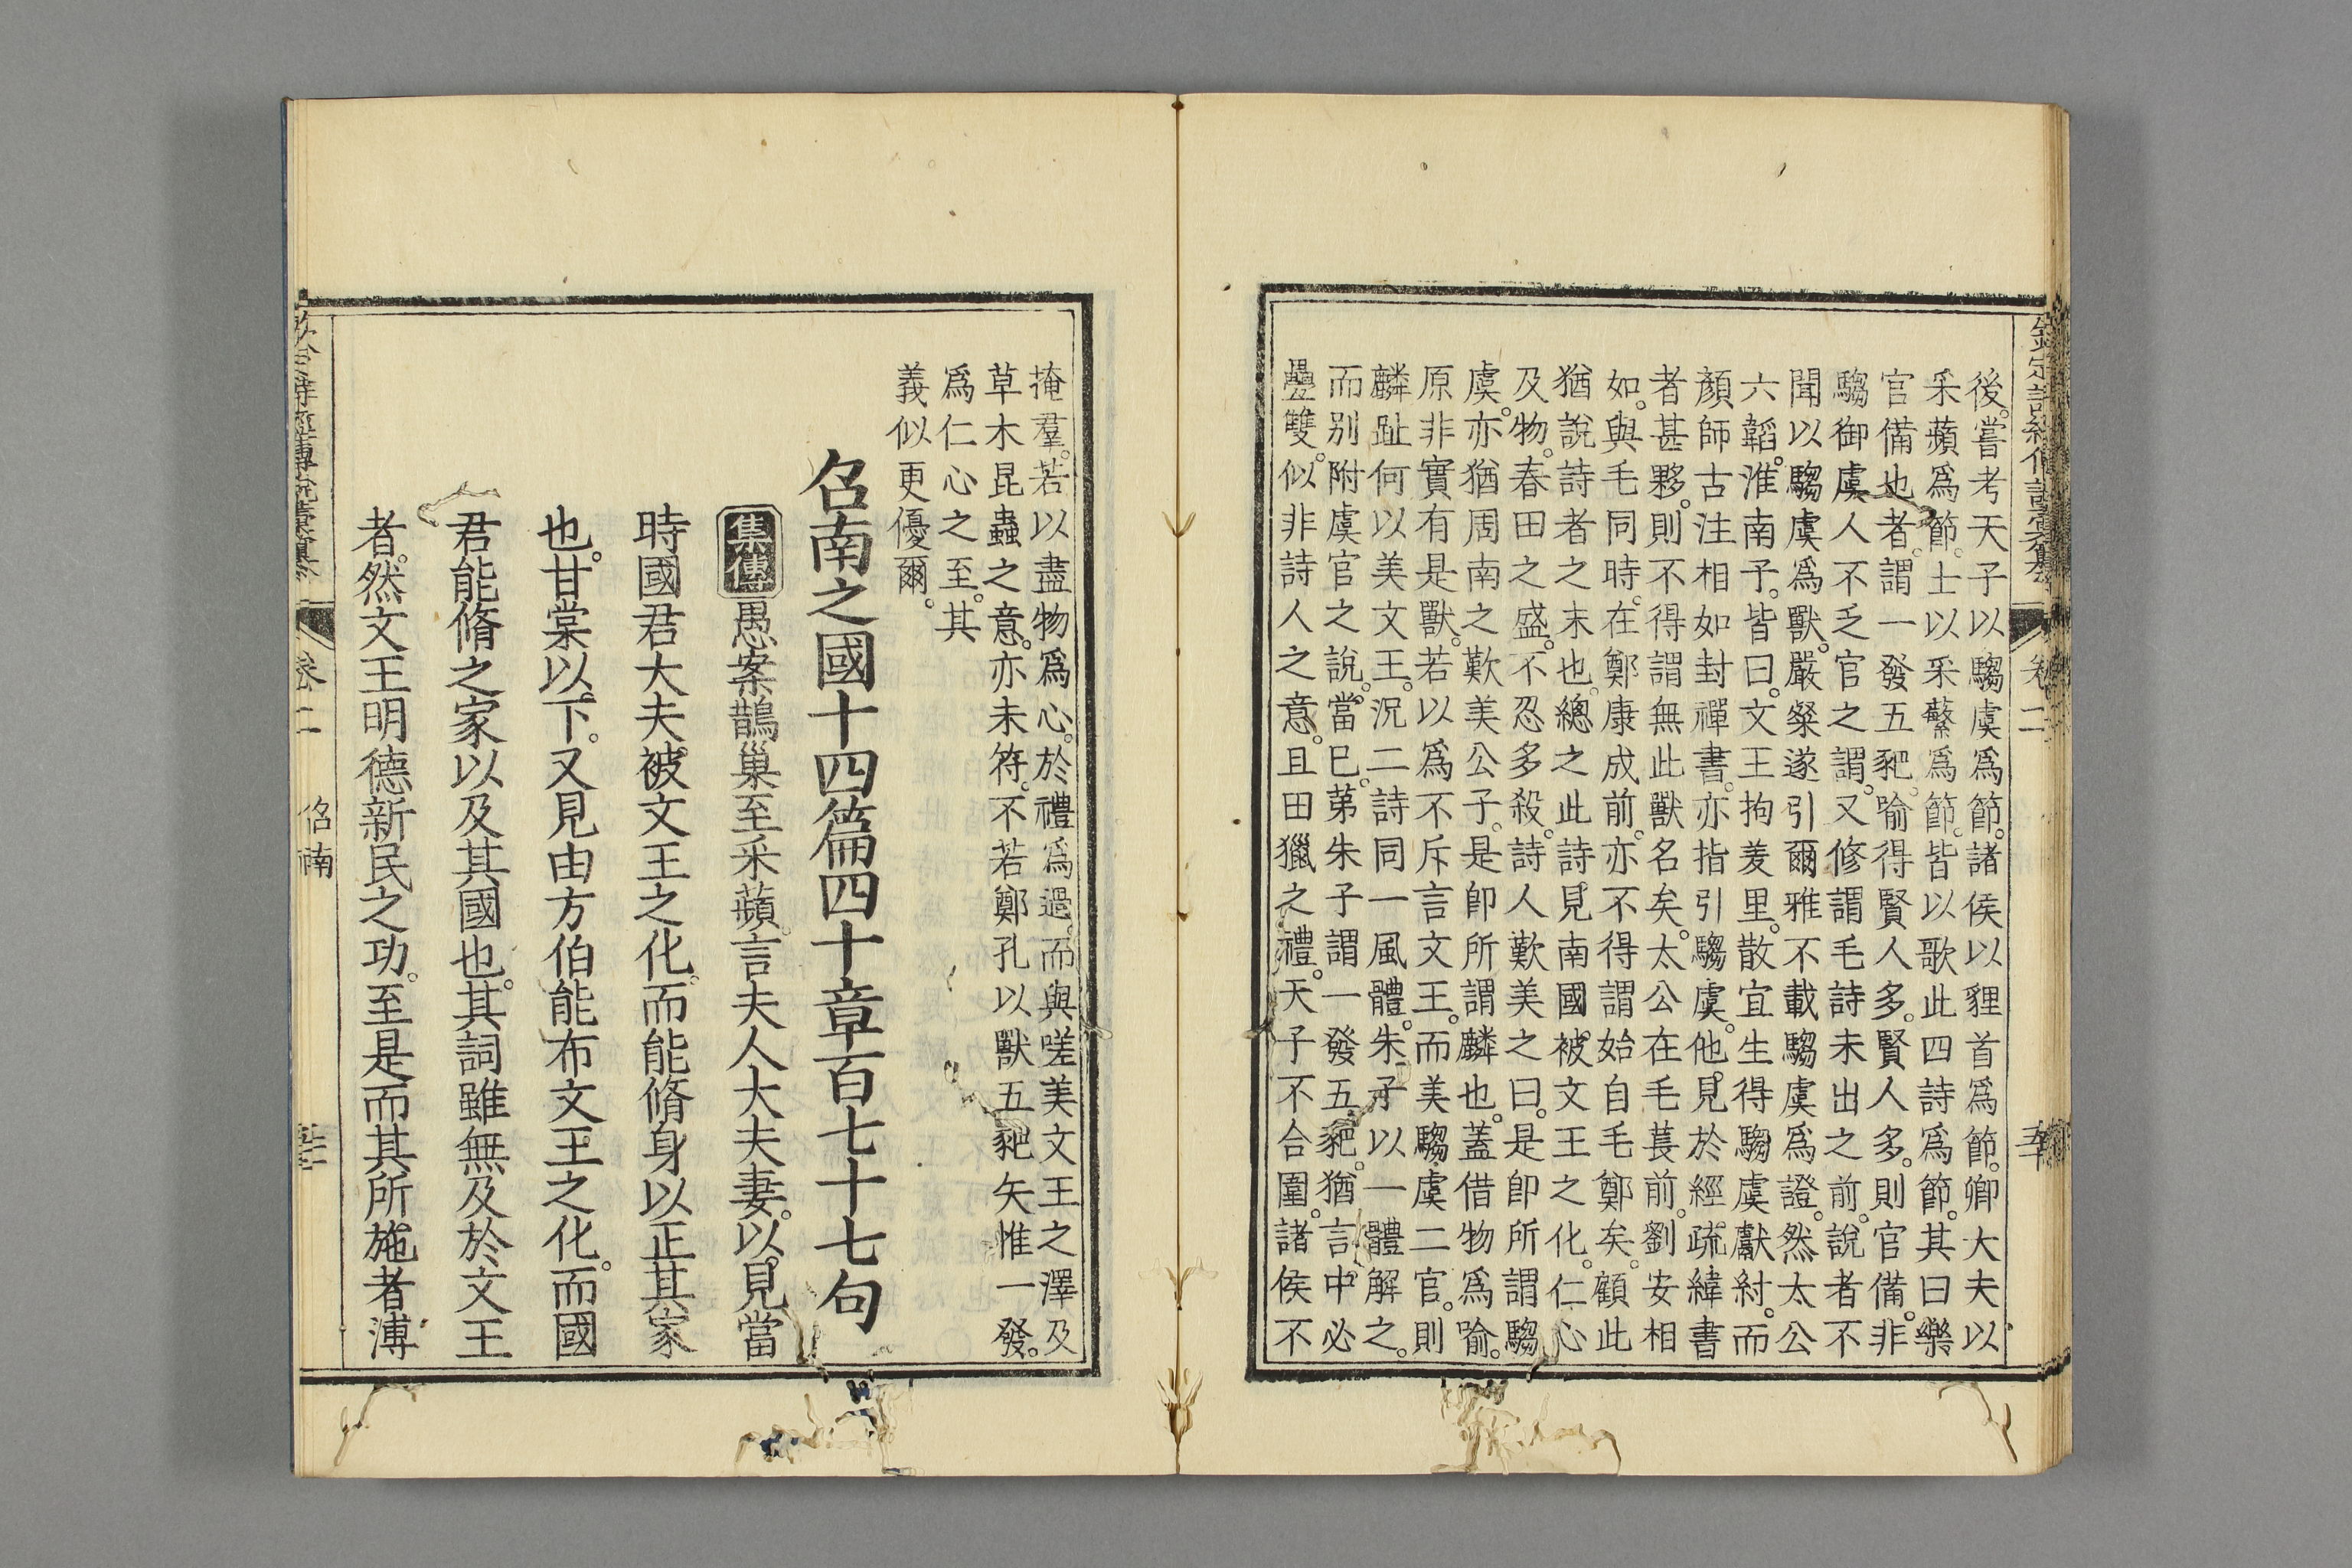 後。嘗考天子以騶虞爲節。諸侯以貍首爲節。卿大夫以
采蘋爲節。士以采蘩爲節。皆以歌此四詩爲節。其曰樂
官備也者。謂一發五豝。喻得賢人多。賢人多。則官備。非
騶御虞人不乏官之謂。又修謂毛詩未出之前。說者不
聞以騶虞爲獸。嚴粲遂引爾雅不載騶虞爲證。然太公
六韜。淮南子。皆曰。文王拘羑里。散宜生得騶虞獻紂。而
顏師古注相如封禪書。亦指引騶虞。他見於經疏緯書
者甚夥。則不得謂無此獸名矣。太公在毛萇前。劉安相
如。與毛同時。在鄭康成前。亦不得謂始自毛鄭矣。顧此
猶說詩者之末也。總之此詩。見南國被文王之化。仁心
及物。春田之盛。不忍多殺。詩人歎美之曰。是卽所謂騶
虞。亦猶周南之歎美公子。是卽所謂麟也。蓋借物爲喻。
原非實有是獸。若以爲不斥言文王。而美騶虞二官。則
麟趾何以美文王。況二詩同一風體。朱子以一體解之。
而别附虞官之說。當巳。苐朱子謂一發五豝。猶言中必
疊雙。似非詩人之意。且田獵之禮。天子不合圍。諸侯不
掩羣。若以盡物爲心。於禮爲過。而與嗟美文王之澤及
草木昆蟲之意。亦未符。不若鄭孔以獸五豝矢惟一發。
爲仁心之至。其
義似更優爾。
召南之國十四篇四十章百七十七句
集傳愚案鵲巢至采蘋。言夫人大夫妻。以見當
時國君大夫被文王之化。而能脩身以正其家
也。甘棠以下。又見由方伯能布文王之化。而國
君能脩之家以及其國也。其詞雖無及於文王
者。然文王明德新民之功。至是而其所施者溥
卷二
召南